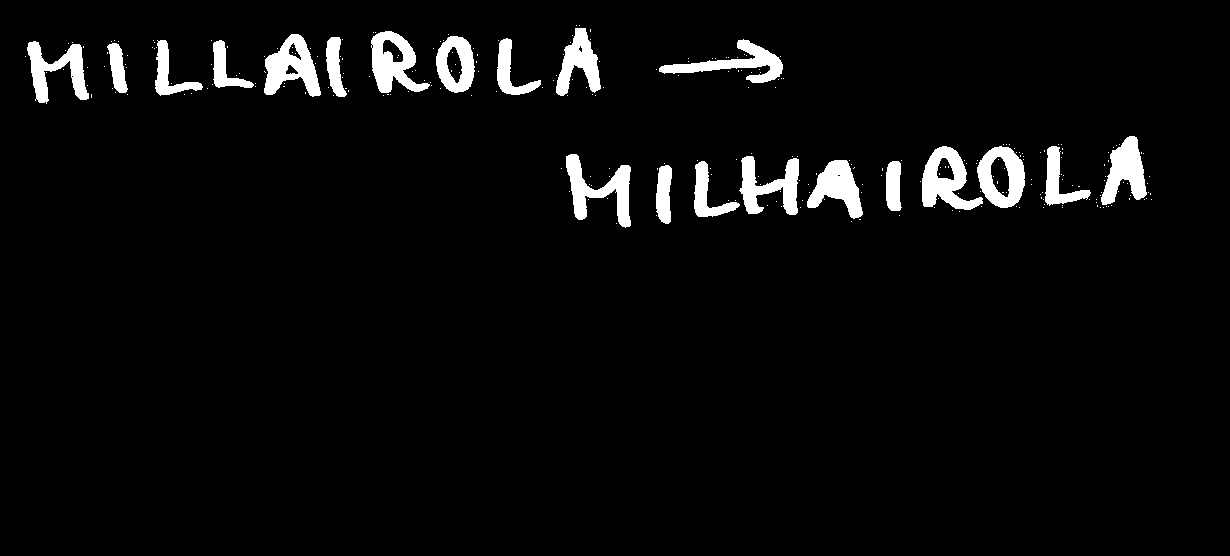 MILLAIROLA →
MILHAIROLA